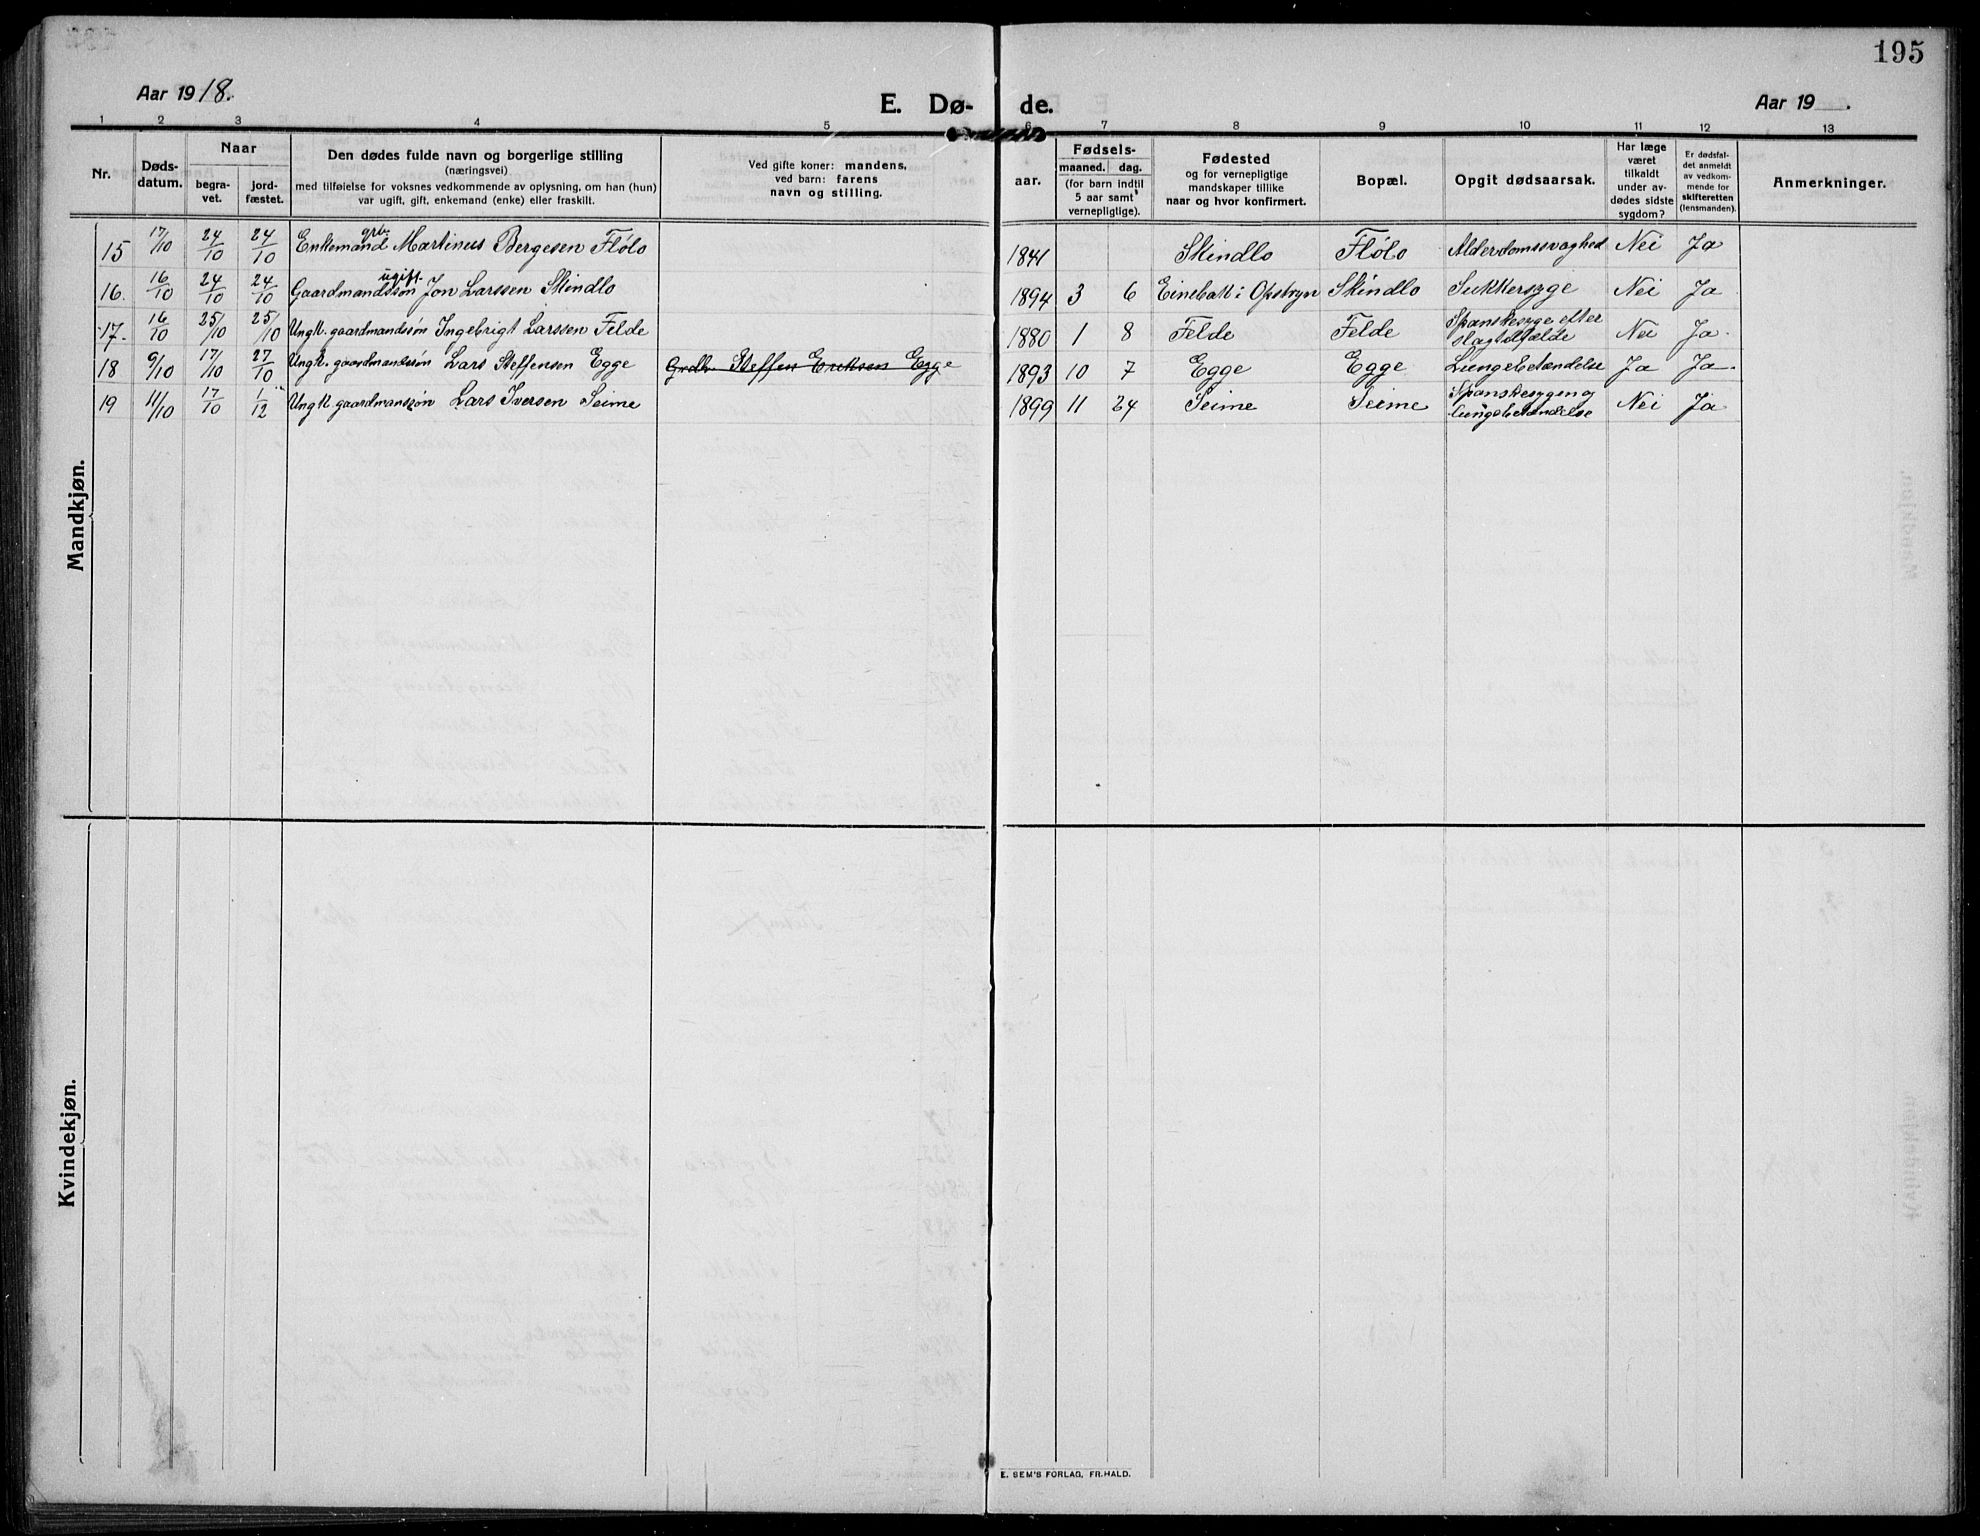 195
Aar 1918.
E. Dø- de.
Aar 19 .
1 2 3 4 5 6 7 8 9 10 11 12 13
Nr.
Døds-
datum.
Naar
begra-
vet.
jord-
fæstet.
Den dødes fulde navn og borgerlige stilling
(næringsvei)
med tilføielse for voksnes vedkommende av oplysning, om han (hun)
var ugift, gift, enkemand (enke) eller fraskilt.
Ved gifte koner: mandens,
ved barn: farens
navn og stilling.
Fødsels-
aar.
maaned. dag.
(for barn indtil
5 aar samt
vernepligtige).
Fødested
og for vernepligtige
mandskaper tillike
naar og hvor konfirmert.
Bopæl.
Opgit dødsaarsak.
Har læge
været
tilkaldt
under av-
dødes sidste
sygdom?
Er dødsfal-
det anmeldt
av vedkom-
mende for
skifteretten
(lensmanden).
Anmerkninger.
Mandkjøn.
15 17/10 24/10 24/10 Enkemand grb. Martinus Bergesen Flölo 1841 Skindlo Flölo Alderdomssvaghed Nei Ja
16. 16/10 24/10 24/10 Gaardmandssön ugift. Jon Larssen Skindlo 1894 3 6 Einebak i Opstryn Skindlo Sukkersyge Nei Ja
17. 16/10 25/10 25/10 Ungk. gaardmandssön Ingebrigt Larssen Felde 1880 1 8 Felde Felde Spanskesyge efter slagtilfælde Nei Ja.
18 9/10 17/10 27/10 Ungk. gaardmandssön Lars Steffensen Egge Grdb. Steffen Eriksen Egge 1893 10 7 Egge Egge Lungebetændelse Ja Ja.
19 11/10 17/10 1/12 Ungk. gaardmanssön Lars Iversen Seime 1899 11 24 Seime Seime Spanskesygen og lungebetændelse Nei Ja
Kvindekjøn.
E. SEM'S FORLAG, FR.HALD.